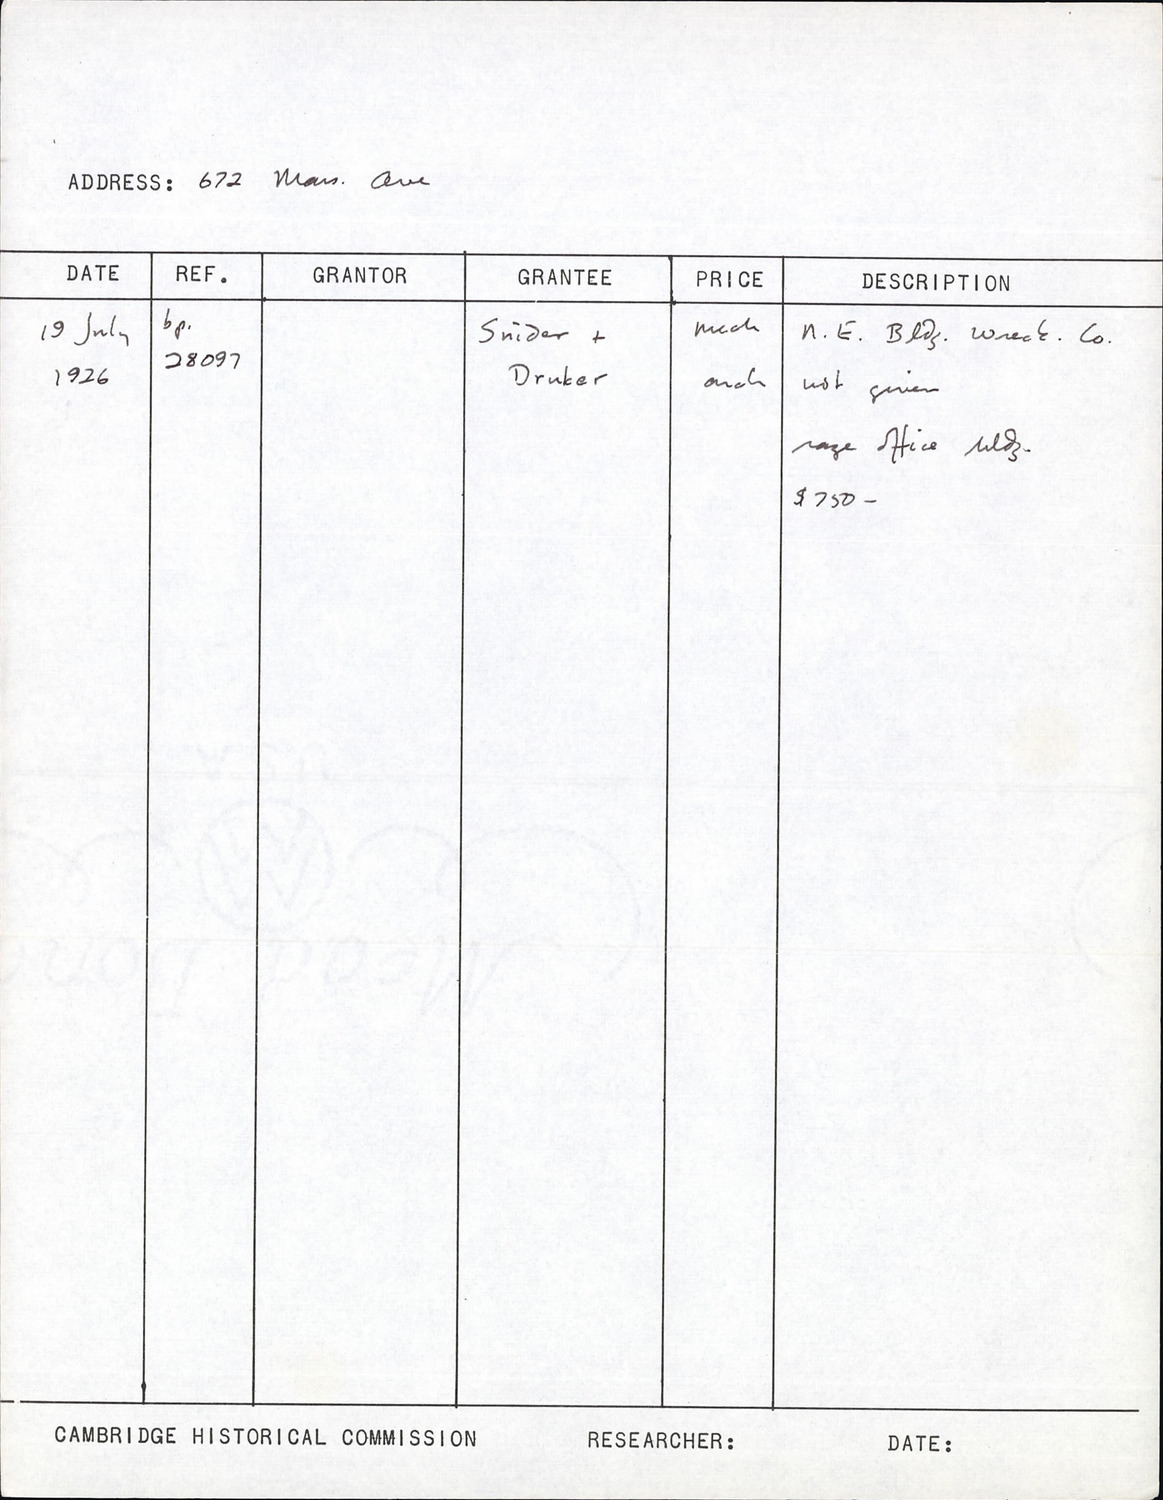 ADDRESS: 672 Mass. Ave
DATE REF. GRANTOR GRANTEE PRICE DESCRIPTION
19 July bp. Snider + mech N. E. Bldg. Wreck. Co.
1926 28097 Druker arch not given
raze office bldg.
$750 –
CAMBRIDGE HISTORICAL COMMISSION RESEARCHER: DATE: